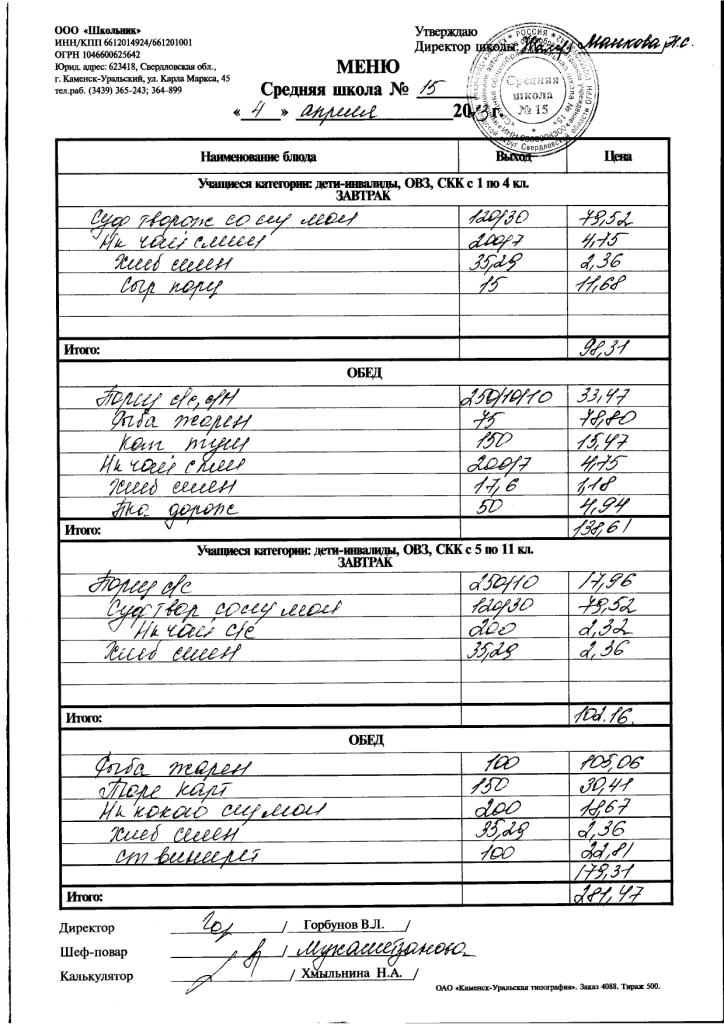 ООО «Школьник»
ИНН/КПП 6612014924/661201001
ОГРН 1046600625642
Юрид. адрес: 623418, Свердловская обл.,
г. Каменск-Уральский, ул. Карла Маркса, 45
тел.раб. (3439) 365-243; 364-899
Утверждаю
Директор школы: Манкова Н.С.
Средняя
школа
№ 15
МЕНЮ
Средняя школа № 15
« 4 » апреля 2023 г.
Наименование блюда Выход Цена
Учащиеся категории: дети-инвалиды, ОВЗ, СКК с 1 по 4 кл.
ЗАВТРАК
Суф творож со сгу мол 120/30 79,52
Нк чай с лим 200/7 4,75
Хлеб пшен 35,29 2,36
Сыр порц 15 11,68
Итого: 98,31
ОБЕД
Борщ с/с, с/м 250/10/10 33,47
Рыба жарен 75 78,80
Кап туш 150 15,47
Нк чай с лим 200/7 4,75
Хлеб пшен 17,6 1,18
дорож 50 4,94
Итого: 138,61
Учащиеся категории: дети-инвалиды, ОВЗ, СКК с 5 по 11 кл.
ЗАВТРАК
Борщ с/с 250/10 17,96
Суф твор со сгу мол 120/30 79,52
Нк чай с/с 200 2,32
Хлеб пшен 35,29 2,36
Итого: 102.16.
ОБЕД
Рыба жарен 100 105,06
Пюре карт 150 30,41
Нк какао сгу мол 200 18,67
Хлеб пшен 35,29 2,36
ст винегрет 100 22,81
179,31
Итого: 281,47
Директор / Горбунов В.Л. /
Шеф-повар /
Калькулятор / Хмыльнина Н.А. /
ОАО «Каменск-Уральская типография». Заказ 4088. Тираж 500.